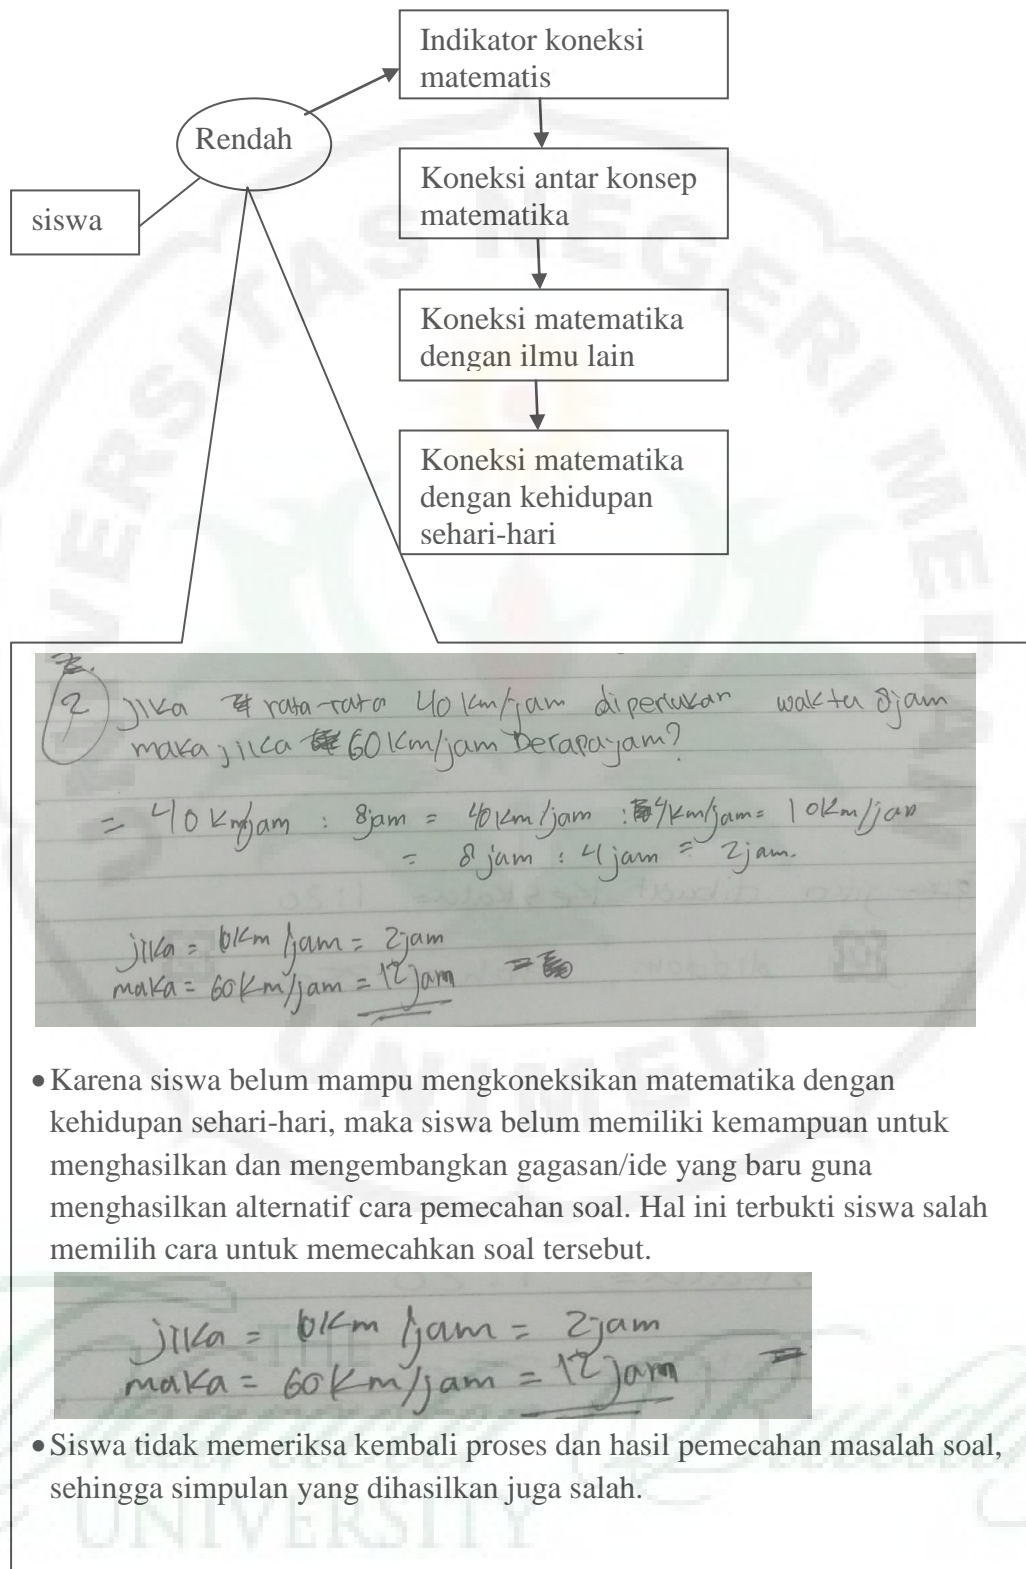 Indikator koneksi
matematis
Rendah
siswa
Koneksi antar konsep
matematika
Koneksi matematika
dengan ilmu lain
Koneksi matematika
dengan kehidupan
sehari-hari
2 jika rata-rata 40 km/jam diperlukan waktu 8jam
maka jika 60 km/jam berapa jam?
= 40 km/jam : 8jam = 40 km/jam : 4 km/jam = 10 km/jam
= 8 jam : 4 jam = 2 jam.
jika = 10 km/jam = 2 jam
maka = 60 km/jam = 12 jam =
• Karena siswa belum mampu mengkoneksikan matematika dengan
kehidupan sehari-hari, maka siswa belum memiliki kemampuan untuk
menghasilkan dan mengembangkan gagasan/ide yang baru guna
menghasilkan alternatif cara pemecahan soal. Hal ini terbukti siswa salah
memilih cara untuk memecahkan soal tersebut.
jika = 10 km/jam = 2 jam
maka = 60 km/jam = 12 jam =
• Siswa tidak memeriksa kembali proses dan hasil pemecahan masalah soal,
sehingga simpulan yang dihasilkan juga salah.
UNIVERSITAS NEGERI MEDAN
UNIMED
THE
UNIVERSITY